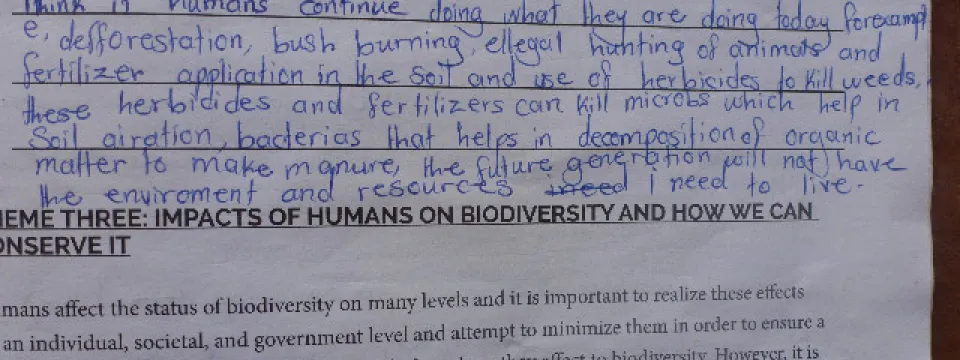 think if humans continue doing what they are doing today forexampl
e, defforestation, bush burning, ellegal hunting of animals and
fertilizer application in the soil and use of herbicides to kill weeds,
these herbidides and fertilizers can kill microbs which help in
Soil airation, bacterias that helps in decomposition of organic
matter to make manure, the future generation will not have
the enviroment and resources i need to live.
HEME THREE: IMPACTS OF HUMANS ON BIODIVERSITY AND HOW WE CAN
ONSERVE IT
mans affect the status of biodiversity on many levels and it is important to realize these effects
an individual, societal, and government level and attempt to minimize them in order to ensure a
to biodiversity. However, it is